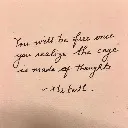 You will be free once
you realize the cage
is made of thoughts